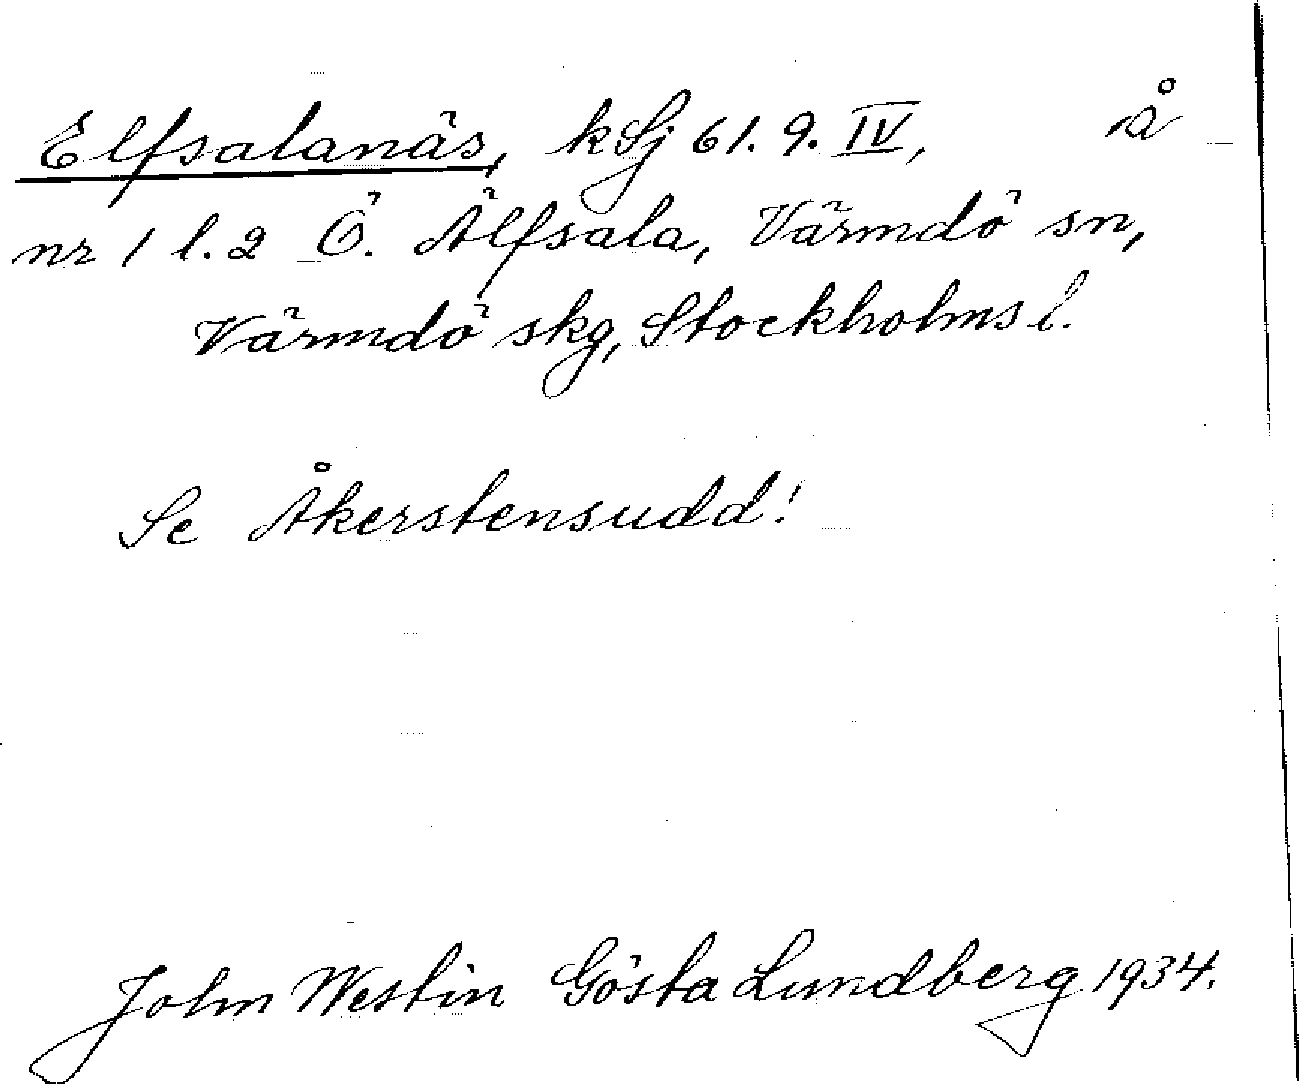 Elfsalanäs, kSj 61. 9. IV, å
nr 1 l. 2 Ö. Älfsala, Värmdö sn,
Värmdö skg, Stockholms l.
Se Åkerstensudd!
John Westin Gösta Lundberg 1934.